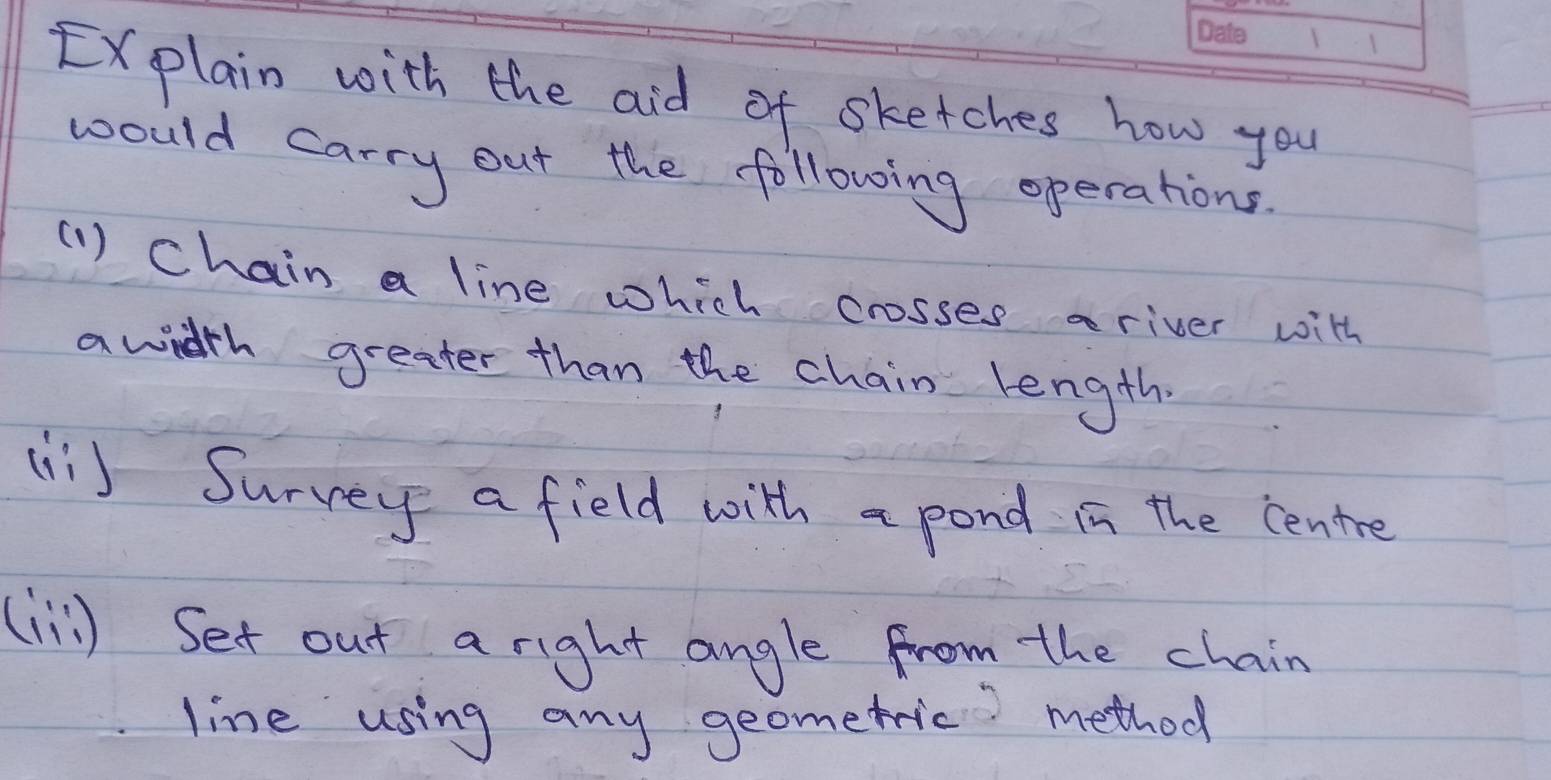 Date
Explain with the aid of sketches how you
would carry out the following operations.
(i) Chain a line which crosses a river with
a width greater than the chain length.
(ii) Survey a field with a pond in the centre
(iii) Set out a right angle from the chain
line using any geometric method